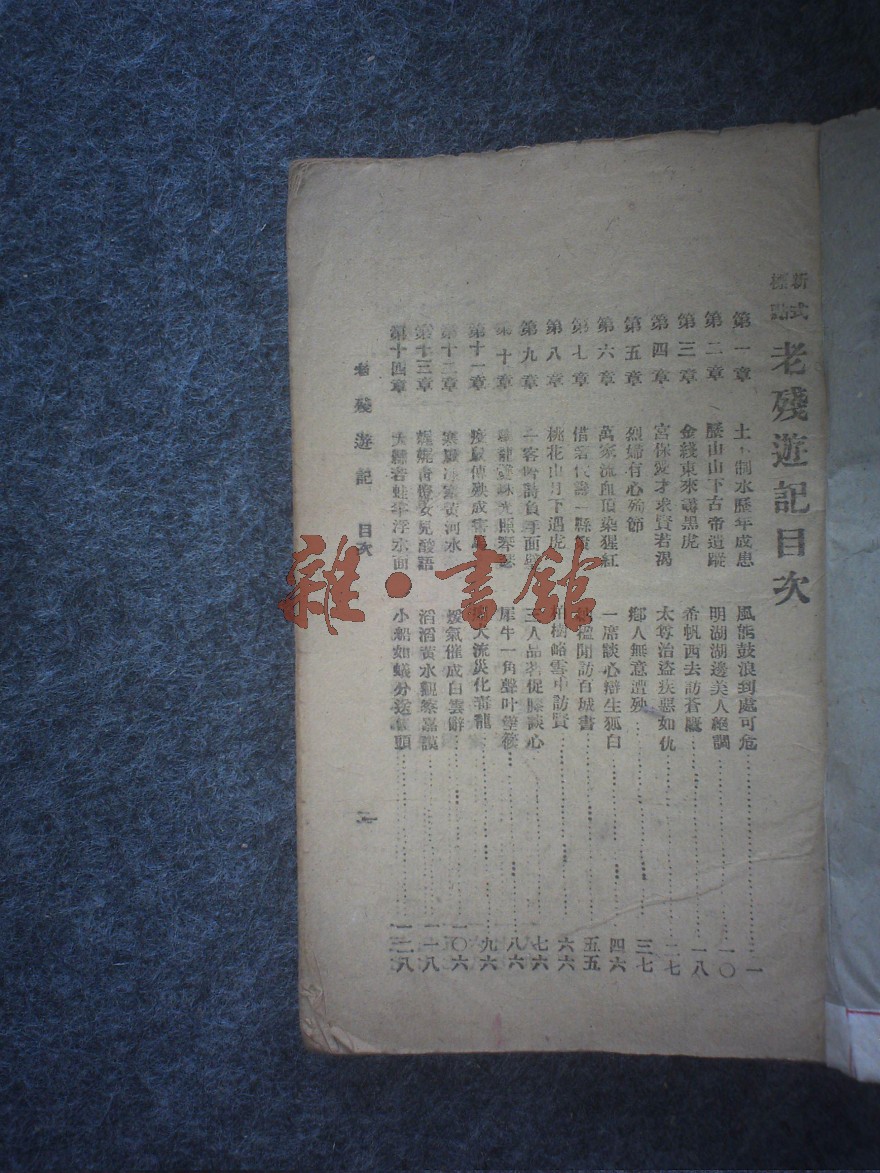 新式標點 老殘遊記目次
第一章 土不制水歷年成患 風能鼓浪到處可危 一
第二章 歷山山下古帝遺蹤 明湖湖邊美人絕調 一〇
第三章 金綫東來尋黑虎 希帆西去訪蒼鷹 一八
第四章 宮保愛才求賢若渴 太尊治盜疾惡如仇 二七
第五章 烈婦有心殉節 鄉人無意遭殃 三七
第六章 萬家流血頂染猩紅 一席談心辯生狐白 四六
第七章 借箸代籌一縣 閒訪百城書 五五
第八章 桃花山月下遇虎 柏樹峪雪中訪賢 六六
第九章 一客吟詩負手面壁 三人品茗促膝談心 七六
第十章 照琴瑟 犀牛一角聲叶箜篌 八六
第十一章 疫鼠傳殃成害馬 流災化毒龍 九六
第十二章 寒風凍塞黃河水 煖氣催成白雲辭 一〇六
第十三章 娓娓青燈女兒酸語 滔滔黃水觀察嘉謨 一一八
第十四章 大縣若蛙半浮水面 小船如蟻分送饅頭 一二八
老殘遊記 目次
一
雜·書館